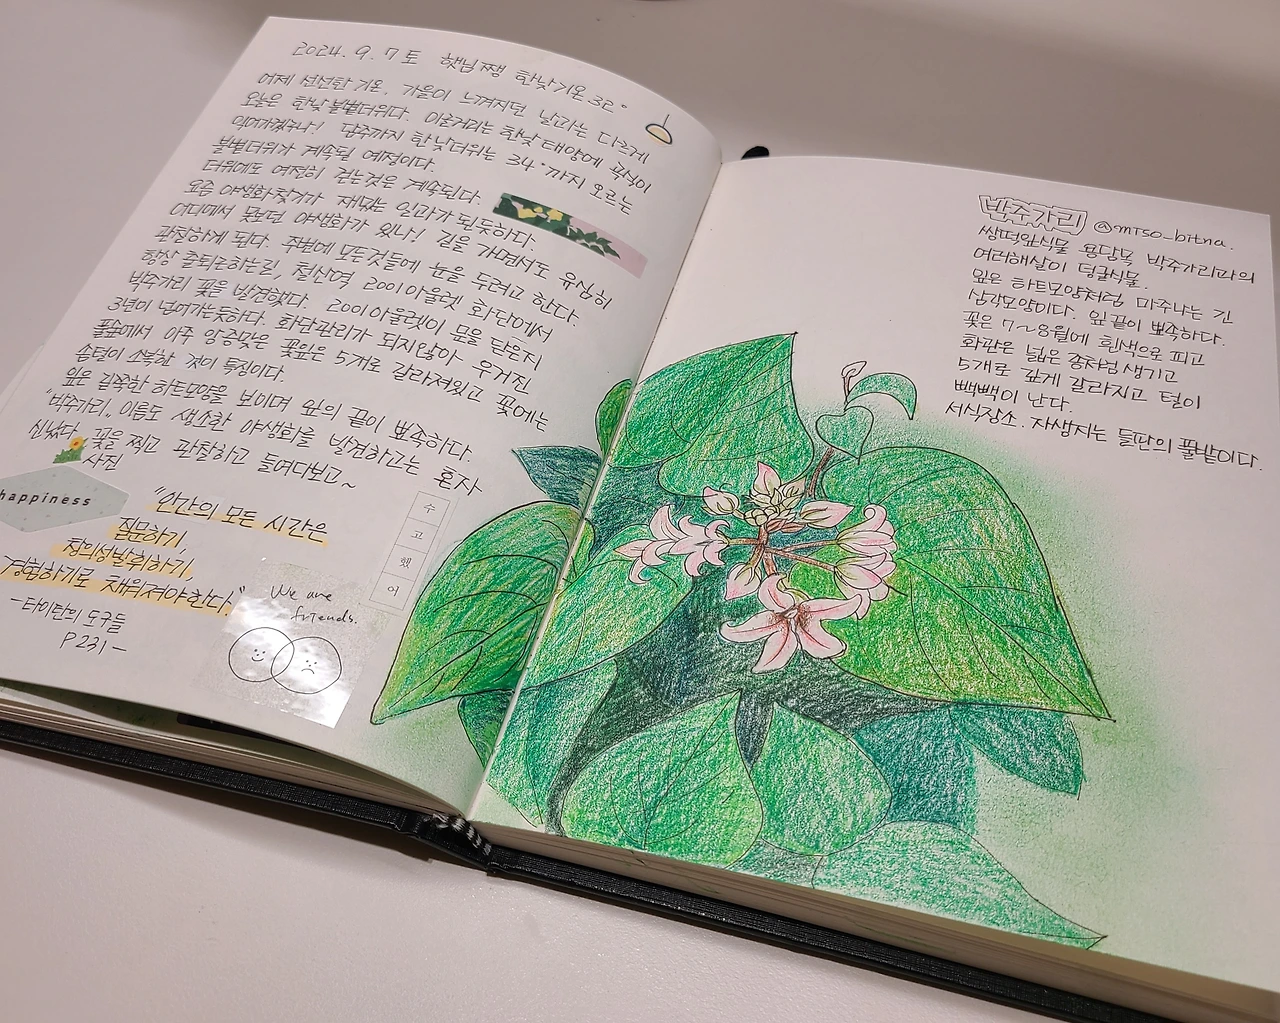 2024. 9. 7 토 햇님쨍 한낮기온 32°
어제 선선한 기온, 가을이 느껴지던 날과는 다르게
오늘은 한낮 불볕더위다. 이글거리는 한낮 태양에 곡식이
익어가겠구나! 담주까지 한낮더위는 34°까지 오르는
불볕더위가 계속될 예정이다.
더위에도 여전히 걷는것은 계속된다.
요즘 야생화찾기가 재밌는 일과가 된듯하다.
어디에서 못봤던 야생화가 있나! 길을 가면서도 유심히
관찰하게 된다. 주변에 모든것들에 눈을 두려고 한다.
항상 출퇴근하는길, 철산역 2001아울렛 화단에서
박주가리 꽃을 발견했다. 2001아울렛이 문을 닫은지
3년이 넘어가는듯하다. 화단관리가 되지않아 우거진
풀숲에서 아주 앙증맞은 꽃잎은 5개로 갈라져있고 꽃에는
솜털이 소복한 것이 특징이다.
잎은 길쭉한 하트모양을 보이며 잎의 끝이 뾰족하다.
"박주가리, 이름도 생소한 야생화를 발견하고는 혼자
신났다. 꽃을 찍고 관찰하고 들여다보고~
사진
happiness
"인간의 모든 시간은
질문하기,
창의성발휘하기,
경험하기로 채워져야한다."
-타이탄의 도구들
P231-
수
고
했
어
We are
friends.
박주가리 @miso_bitna.
쌍떡잎식물 용담목 박주가리과의
여러해살이 덩굴식물.
잎은 하트모양처럼 마주나는 긴
삼각모양이다. 잎 끝이 뾰족하다.
꽃은 7~8월에 흰색으로 피고
화관은 넓은 종처럼 생기고
5개로 깊게 갈라지고 털이
빽빽이 난다.
서식장소. 자생지는 들판의 풀밭이다.